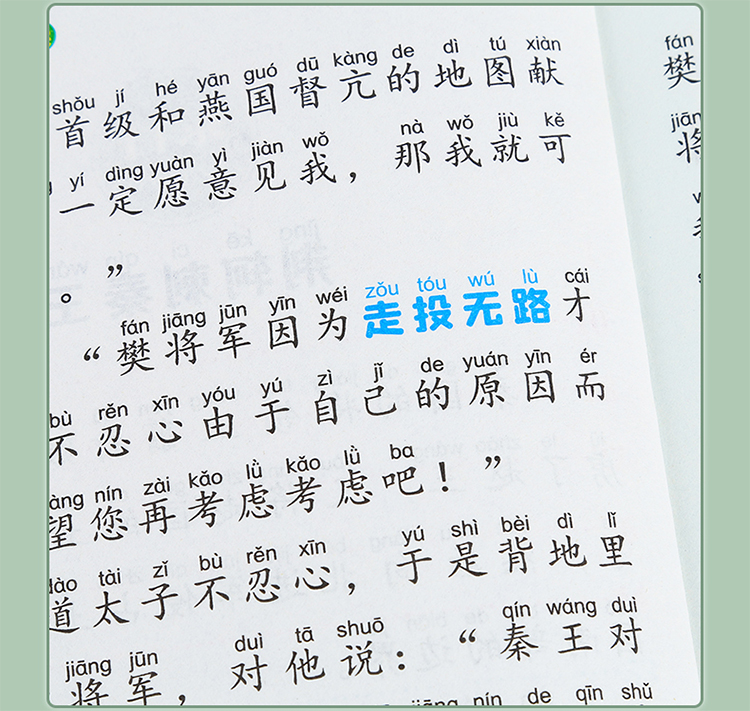 shǒu jí hé yān guó dū kàng de dì tú xiàn
首级和燕国督亢的地图献
yí dìng yuàn yì jiàn wǒ nà wǒ jiù kě
一定愿意见我，那我就可
。”
fán jiāng jūn yīn wéi zǒu tóu wú lù cái
“樊将军因为走投无路才
bù rěn xīn yóu yú zì jǐ de yuán yīn ér
不忍心由于自己的原因而
nín zài kǎo lǜ kǎo lǜ ba
望您再考虑考虑吧！”
dào tài zǐ bù rěn xīn yú shì bèi dì lǐ
道太子不忍心，于是背地里
jiāng jūn duì tā shuō qín wáng duì
将军，对他说：“秦王对
jiāng jūn nín de qīn shǔ
fán
樊
jiāng
将